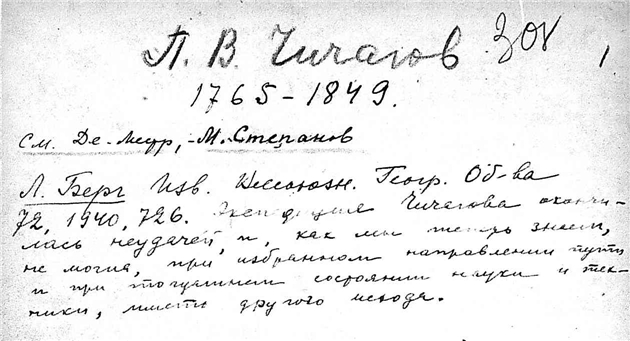 П. В. Чичагов зоя 1
1765-1849.
см. Де-Местр, М. Степанов
Л. Берг Изв. Всесоюзн. Геогр. Об-ва
72, 1940, 726. Экспедиция Чичагова окончи-
лась неудачей, и, как мы теперь знаем,
не могла, при избранном направлении пути
и при тогдашнем состоянии науки и тех-
ники, иметь другого исхода.